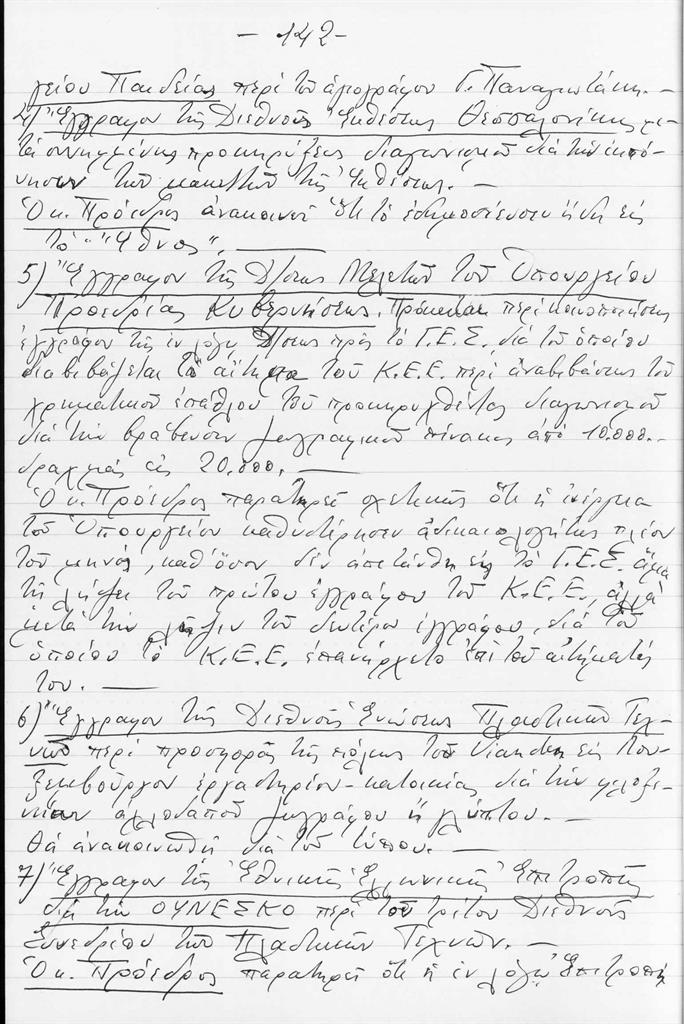 - 142 -
γείου Παιδείας περὶ τοῦ ἁγιογράφου Γ. Παναγιωτάκη. -
4) Ἔγγραφον τῆς Διεθνοῦς Ἐκθέσεως Θεσσαλονίκης με-
τὰ συνημμένης προκηρύξεως διαγωνισμοῦ διὰ τὴν ἐκπό-
νησιν τῶν μακεττῶν τῆς Ἐκθέσεως. -
Ὁ κ. Πρόεδρος ἀνακοινοῖ ὅτι τὸ ἐδημοσίευσεν ἤδη εἰς
τὸ "Ἔθνος". -
5) Ἔγγραφον τῆς Δ/σεως Μελετῶν τοῦ Ὑπουργείου
Προεδρίας Κυβερνήσεως. Πρόκειται περὶ κοινοποιήσεως
ἐγγράφου τῆς ἐν λόγῳ Δ/σεως πρὸς τὸ Γ.Ε.Σ. διὰ τοῦ ὁποίου
διαβιβάζεται τὸ αἴτημα τοῦ Κ.Ε.Ε. περὶ ἀναβιβάσεως τοῦ
χρηματικοῦ ἐπάθλου τοῦ προκηρυχθέντος διαγωνισμοῦ
διὰ τὴν βράβευσιν ζωγραφικοῦ πίνακος ἀπὸ 10.000.-
δραχμὰς εἰς 20.000. -
Ὁ κ. Πρόεδρος παρατηρεῖ σχετικῶς ὅτι ἡ ἐνέργεια
τοῦ Ὑπουργείου καθυστέρησεν ἀδικαιολογήτως πλέον
τοῦ μηνός, καθ' ὅσον δὲν ἀπετάνθη εἰς τὸ Γ.Ε.Σ. ἅμα
τῇ λήψει τοῦ πρώτου ἐγγράφου τοῦ Κ.Ε.Ε., ἀλλὰ
μετὰ τὴν λῆψιν τοῦ δευτέρου ἐγγράφου, διὰ τοῦ
ὁποίου τὸ Κ.Ε.Ε. ἐπανήρχετο ἐπὶ τοῦ αἰτήματός
του. -
6) Ἔγγραφον τῆς Διεθνοῦς Ἑνώσεως Πλαστικῶν Τεχ-
νῶν περὶ προσφορᾶς τῆς πόλεως τοῦ Vianden εἰς Λου-
ξεμβοῦργον ἐργαστηρίου - κατοικίας διὰ τὴν φιλοξε-
νίαν ἀλλοδαποῦ ζωγράφου ἢ γλύπτου. -
Θὰ ἀνακοινωθῇ διὰ τοῦ τύπου. -
7) Ἔγγραφον τῆς Ἐθνικῆς Ἑλληνικῆς Ἐπιτροπῆς
διὰ τὴν ΟΥΝΕΣΚΟ περὶ τοῦ τρίτου Διεθνοῦς
Συνεδρίου τῶν Πλαστικῶν Τεχνῶν. -
Ὁ κ. Πρόεδρος παρατηρεῖ ὅτι ἡ ἐν λόγῳ Ἐπιτροπὴ